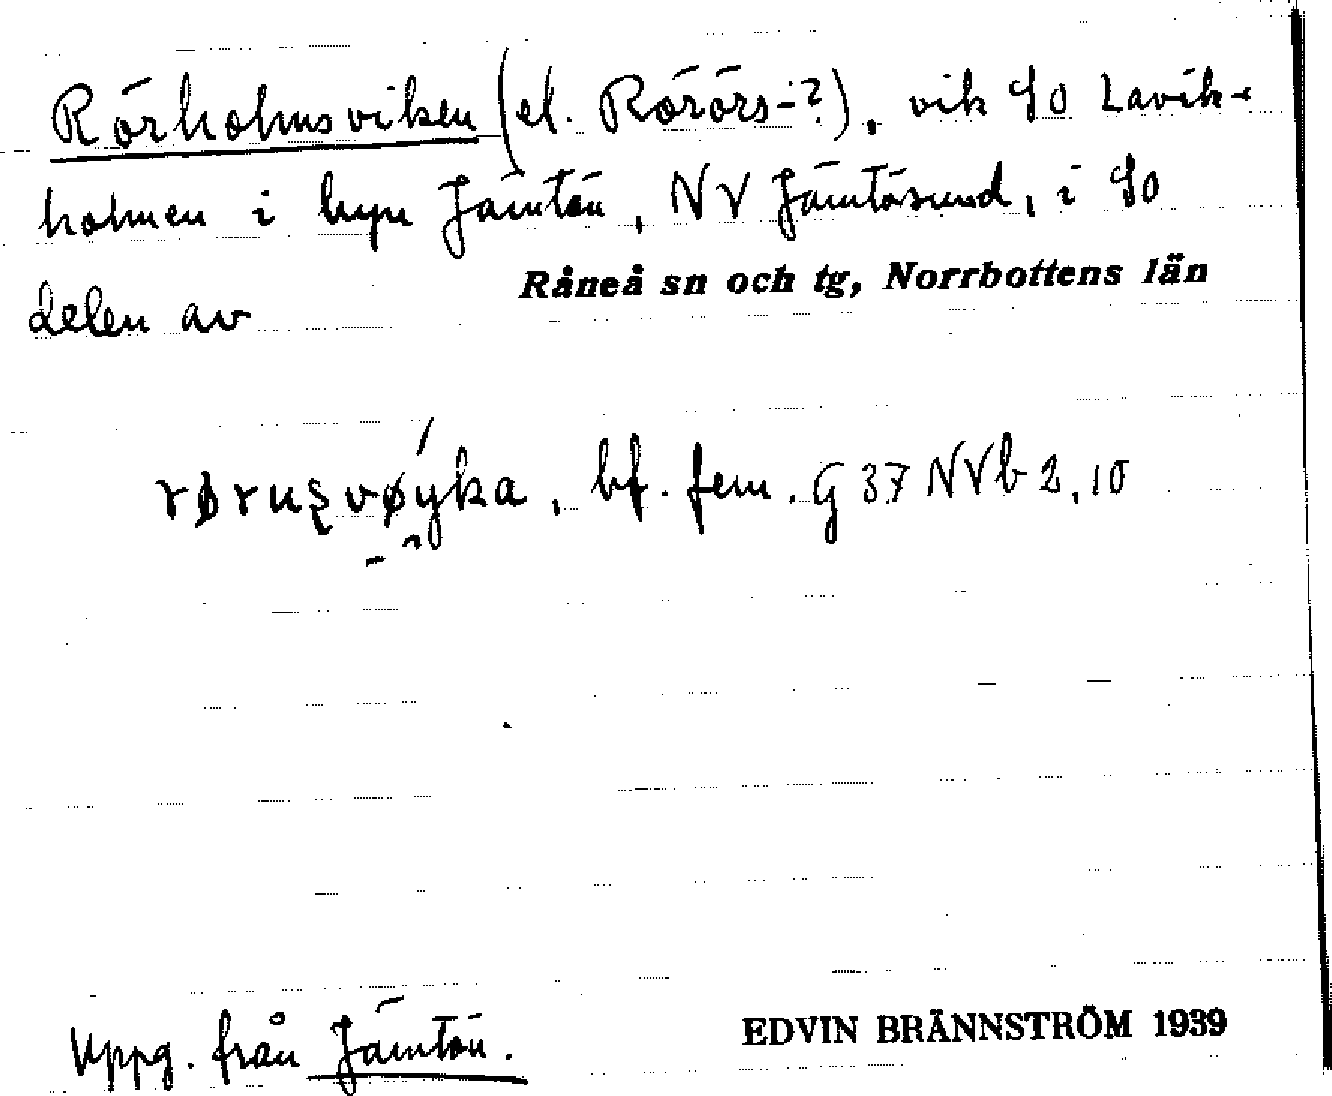 Rörholmsviken (el. Rörörs-?), vik SO Lavik-
holmen i byn Jämtön, NV Jämtösund, i SO
delen av Råneå sn och tg, Norrbottens län
rørusvøyka, bf. fem. G 37 NVb 2,10
Uppg. från Jämtön. EDVIN BRÄNNSTRÖM 1939